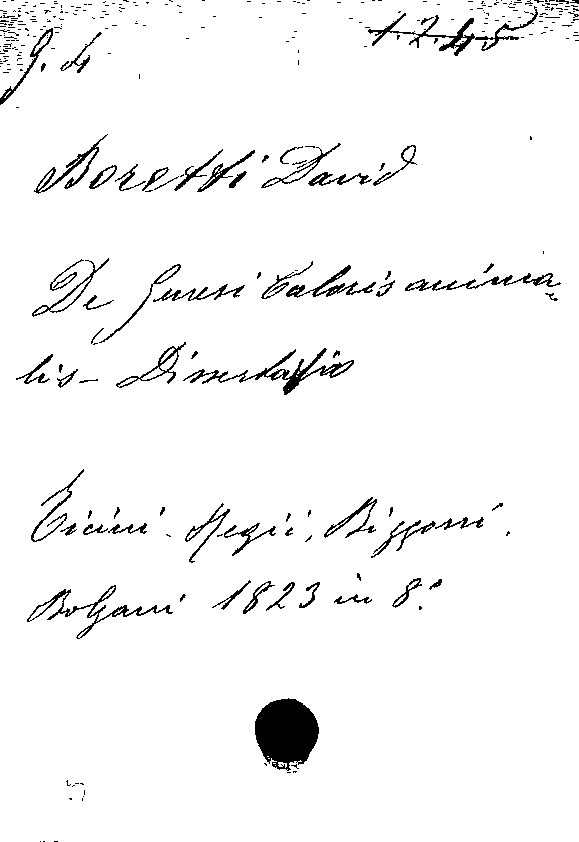 G. 4
1.2.45
Boretti David
De Genesi Caloris anima-
lis - Dissertatio
Ticini Regii, Bizzoni.
Bolzani 1823 in 8.°